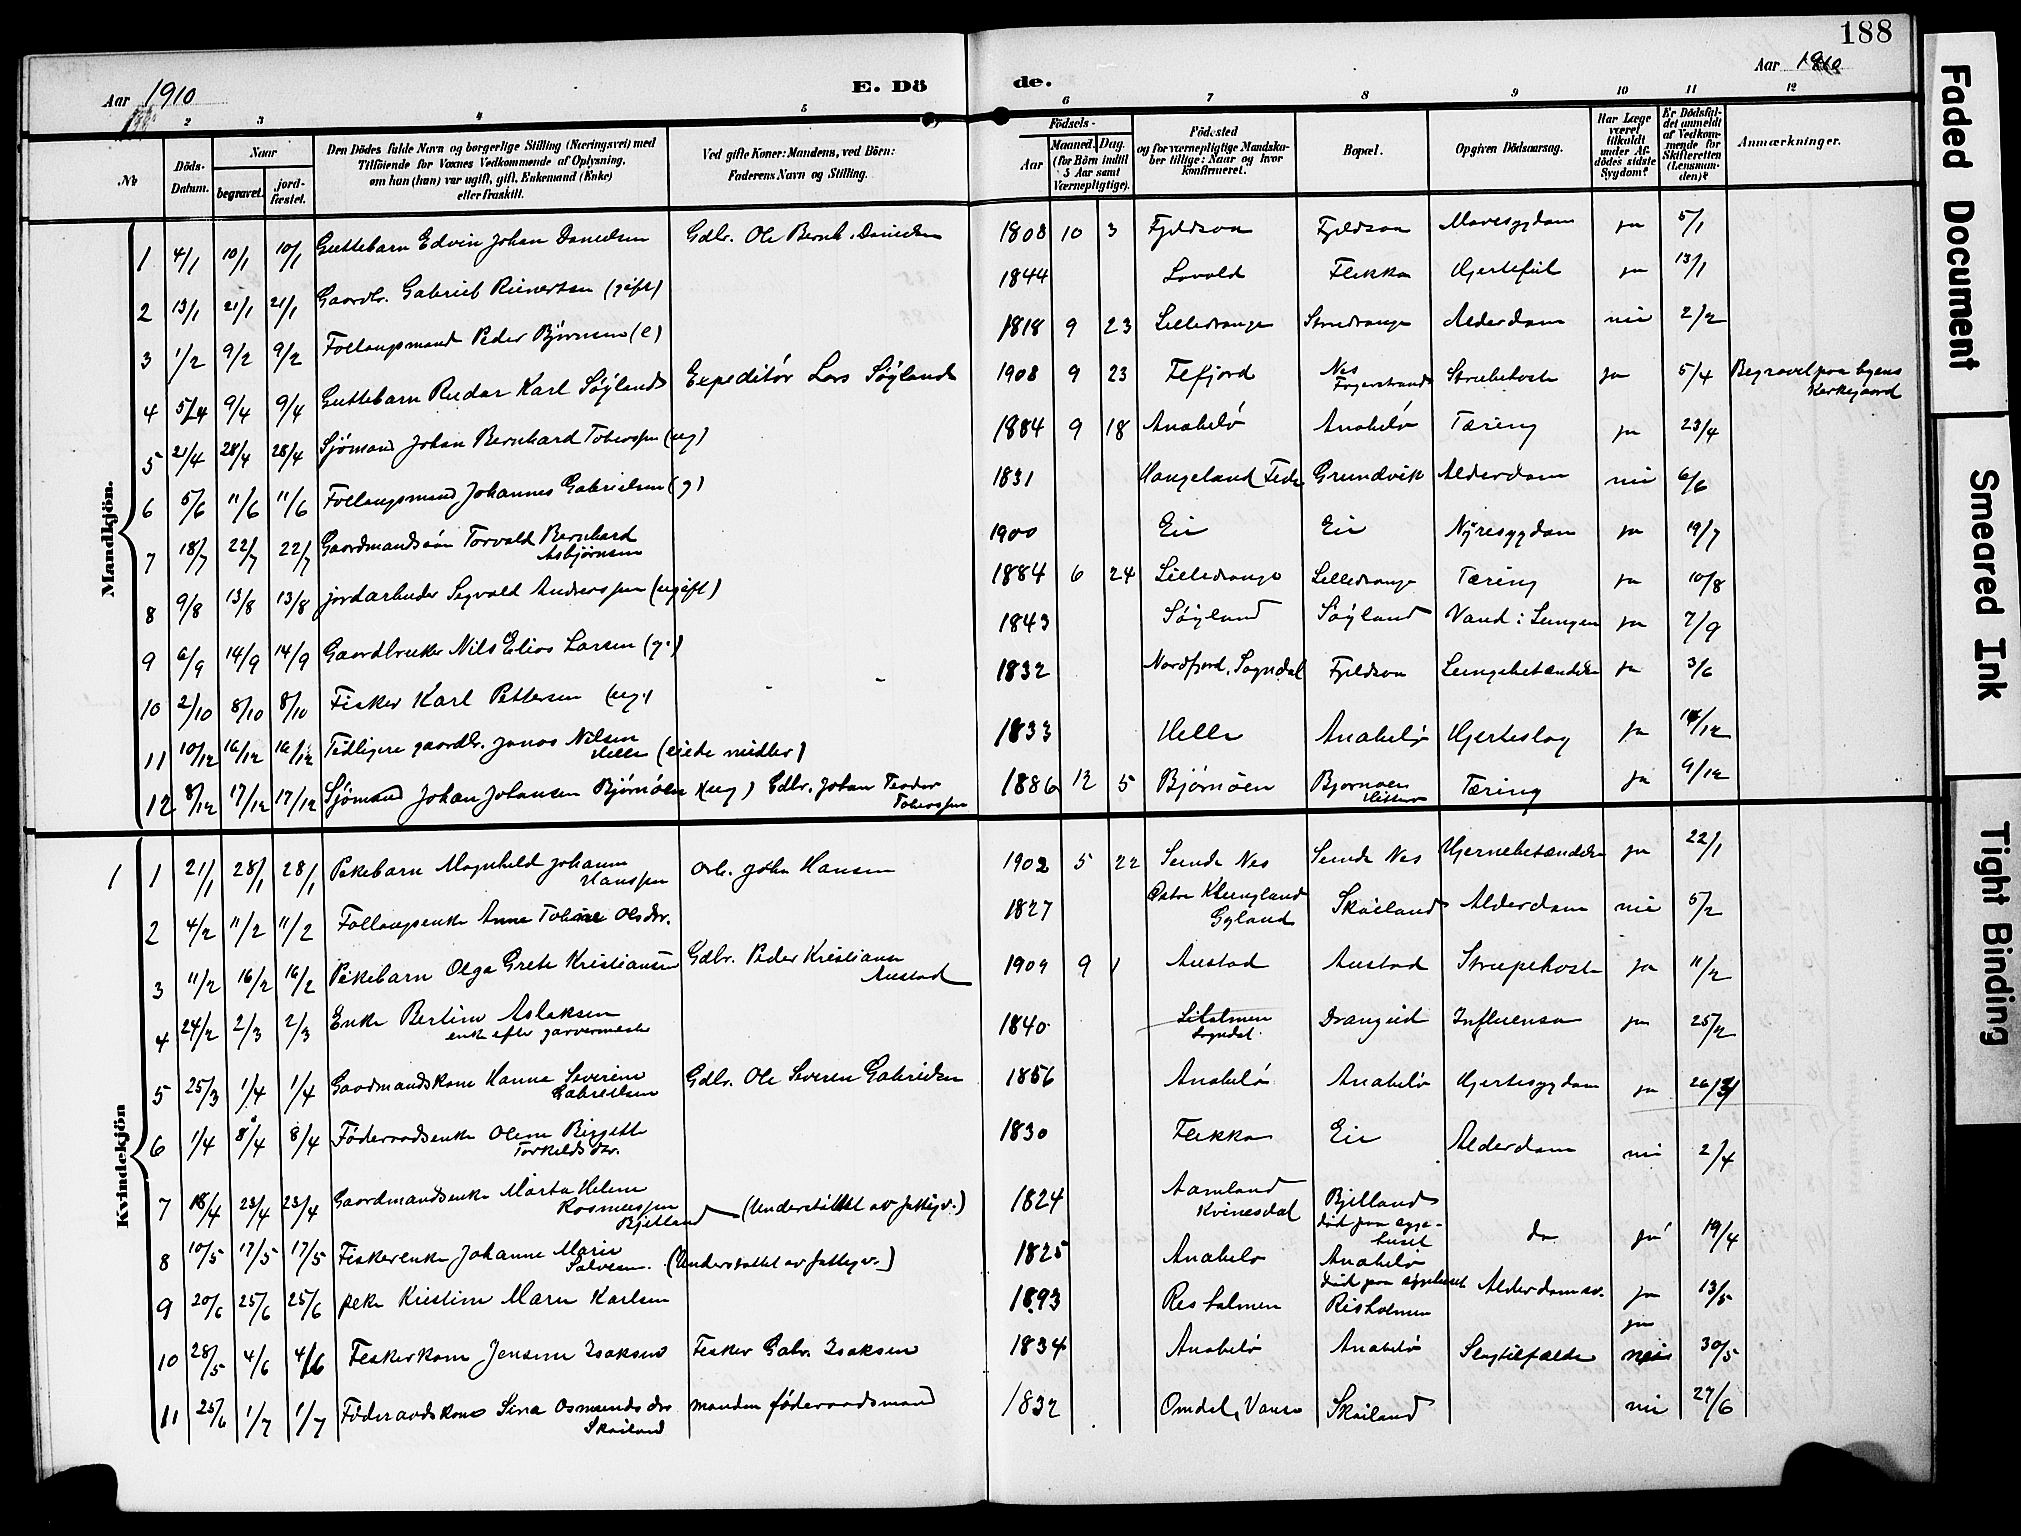 188
Aar 1910
E. Dö
de.
Aar 1910
2 3 4 5 6 7 8 9 10 11 12
No
Döds-Datum.
Naar
begravet.
jord-fæstet.
Den Dödes fulde Navn og borgerlige Stilling (Næringsvei) med
Tilföiende for Voxnes Vedkommende af Oplysning,
om han (hun) var ugift, gift, Enkemand (Enke)
eller fraskilt.
Ved gifte Koner: Mandens, ved Börn:
Faderens Navn og Stilling.
Födsels-
Aar
Maaned. Dag.
(for Börn indtil
5 Aar samt
Værnepligtige).
Födested
og for værnepligtige Mandska-
ber tillige: Naar og hvor
konfirmeret.
Bopæl.
Opgiven Dödsaarsag.
Har Læge
været
tilkaldt
under Af-
dödes sidste
Sygdom?
Er Dödsfal-
det anmeldt
af Vedkom-
mende for
Skifteretten
(Lensman-
den)?
Anmærkninger.
Mandkjön.
1 4/1 10/1 10/1 Guttebarn Edvin Johan Danielsen Gdbr. Ole Bernh. Danielsen 1808 10 3 Fjeldsaa Fjeldsaa Mavesygdom ja 5/1
2 13/1 21/1 21/1 Gaardbr. Gabriel Reinertsen (gift) 1844 Lavold Flikka Hjertefeil ja 13/1
3 1/2 9/2 9/2 Follaugsmand Peder Bjørnsen (e) 1818 9 23 Lilledrange Storedrange Alderdom nei 2/2
4 5/4 9/4 9/4 Guttebarn Reidar Karl Søyland Expeditør Lars Søyland 1908 9 23 Fefjord Nes 5/4 Begravet paa byens
Struebehoste ja Kirkegaard
5 21/4 28/4 28/4 Sjømand Johan Bernhard Tobiassen (ug) 1884 9 18 Anabelø Anabelø Tæring ja 23/4
6 5/6 11/6 11/6 Follaugsmand Johannes Gabrielsen (g) 1831 Haugeland Feda Grundvik Alderdom nei 6/6
7 18/7 22/7 22/7 Gaardmandssøn Torvald Bernhard 1900 Eie Eie Nyresygdom ja 19/7
Asbjørnsen
8 9/8 13/8 13/8 jordarbeider Sigvald Andreassen (ugift) 1884 6 24 Lilledrange Lilledrange Tæring ja 10/8
9 6/9 14/9 14/9 Gaardbruker Nils Elias Larsen (g.) 1843 Søyland Søyland Vand i Lungen ja 7/9
10 2/10 8/10 8/10 Fisker Karl Pettersen (ug.) 1832 Nordfjord, Sogndal Fjeldsaa Lungebetændelse ja 3/6
11 10/12 16/12 16/12 Tidligere gaardbr. Jonas Nilsen 1833 Helle Anabelø Hjerteslag ja 14/12
Helle (eiede midler)
12 8/12 17/12 17/12 Sjømand Johan Johansen Bjørnøen (ug) Gdbr. Johan Teodor 1886 12 5 Bjørnøen Bjørnøen Tæring ja 9/12
Tobiassen Hitterø
Kvindekjön
1 1 21/1 28/1 28/1 Pikebarn Magnhild Johanne Arb. John Hansen 1902 5 22 Sunde Nes Sunde Nes Hjernebetændelse ja 22/1
Hanssen
2 4/2 11/2 11/2 Follaugsenke Anne Tobine Olsdtr. 1827 Østre Klungland Skailand Alderdom nei 5/2
Gyland
3 11/2 16/2 16/2 Pikebarn Olga Grete Kristiansen Gdbr. Peder Kristiansen 1909 9 1 Austad Austad Strupehoste ja 11/2
Austad
4 24/2 2/3 2/3 Enke Bertine Aslaksen 1840 Drangeid Influensa ja 25/2
enke efter garvermester Sogndal.
5 25/3 1/4 1/4 Gaardmandskone Hanna Severine Gdbr. Ole Severin Gabrielsen 1856 Anabelø Anabelø Hjertesygdom ja 26/3
Gabrielsen
6 1/4 8/4 8/4 Føderaadsenke Olene Birgitte 1830 Flikka Eie Alderdom nei 2/4
Torkildsdtr.
7 18/4 23/4 23/4 Gaardmandsenke Marta Helene 1824 Aamland Bjelland do ja 19/4
Rasmussen Kvinesdal død paa syge-
Bjelland (Understøttet av fattigv.) huset
8 10/5 17/5 17/5 Fiskerenke Johanne Marie 1825 Anabelø Anabelø Alderdomssv. ja 13/5
Salvesen. (Understøttet av fattigv.) død paa sygehuset
9 20/6 25/6 25/6 pike Kristine Marie Karlsen 1893 Risholmen Risholmen ja
10 28/5 4/6 4/6 Fiskerkone Jensine Isaksen Fisker Gabr. Isaksen 1834 Anabelø Anabelø Slagtilfælde nei 30/5
11 25/6 1/7 1/7 Føderaadskone Sina Osmundsdtr manden føderaadsmand 1832 Omdal, Vanse Skailand nei 27/6
Skailand
Faded Document
Smeared Ink
Tight Binding